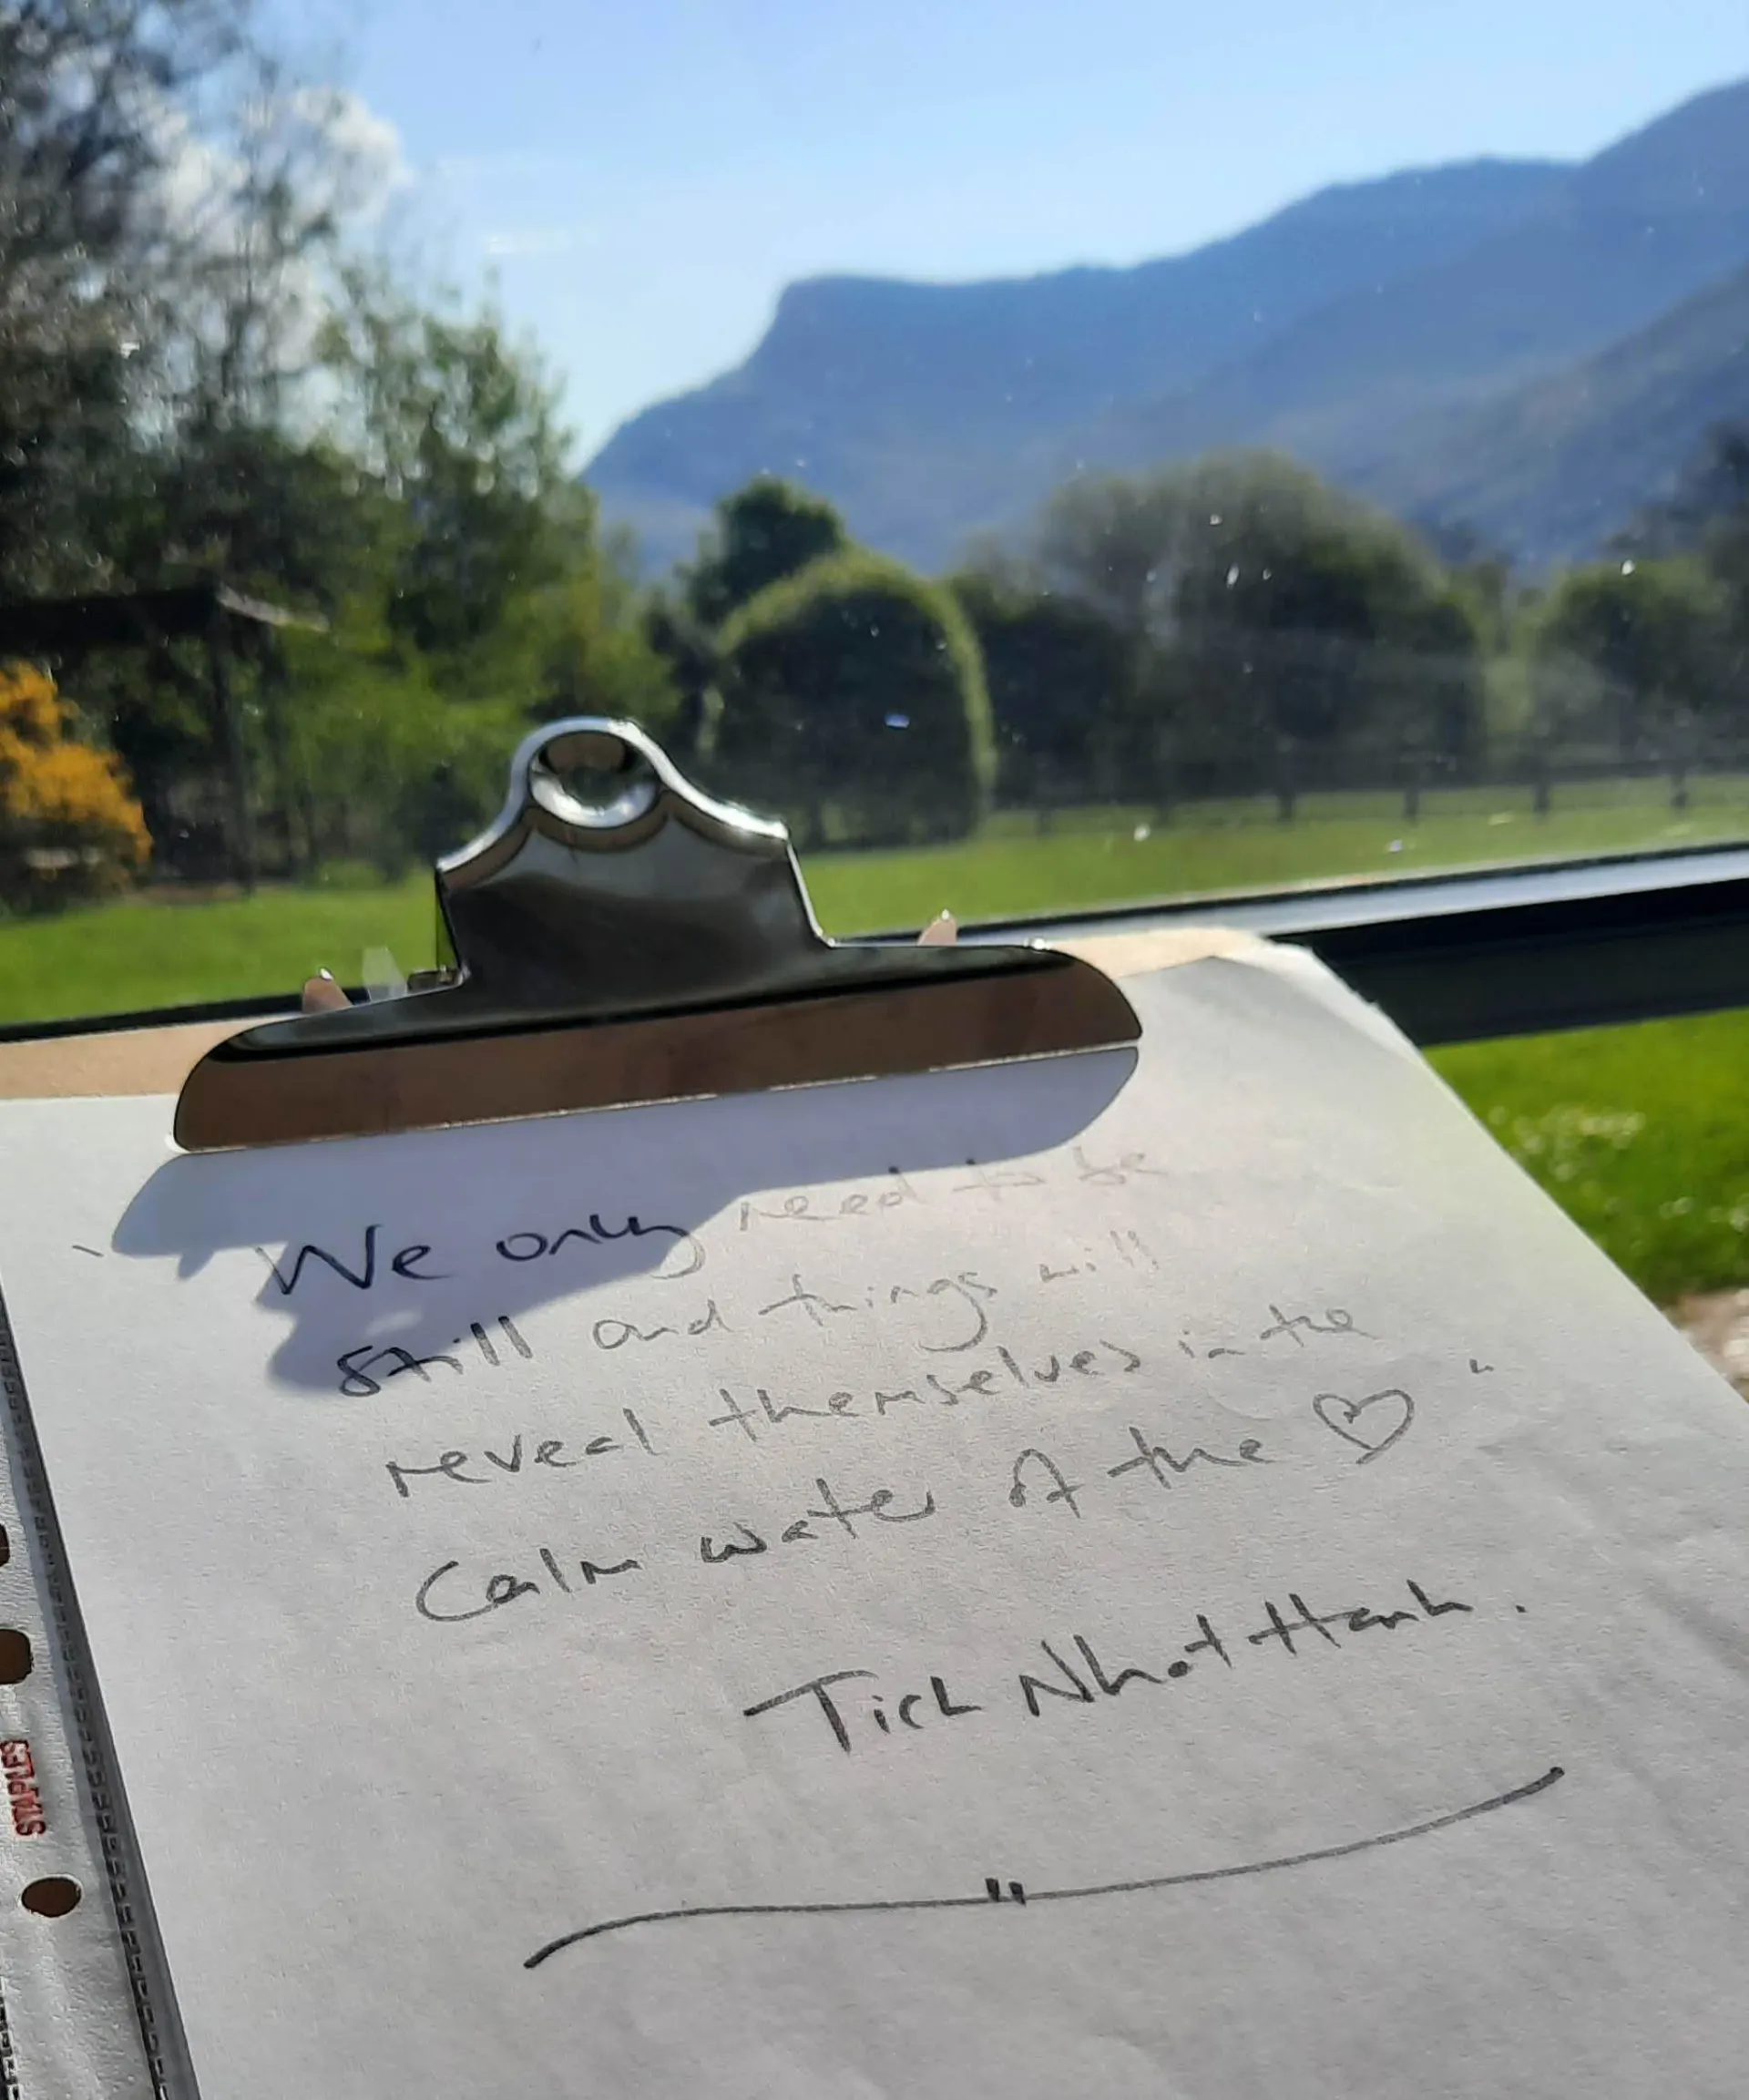 ` We only need to be
still and things will
reveal themselves in the
Calm water of the ♡ "
Tich Nhat Hanh.
"
STAPLES